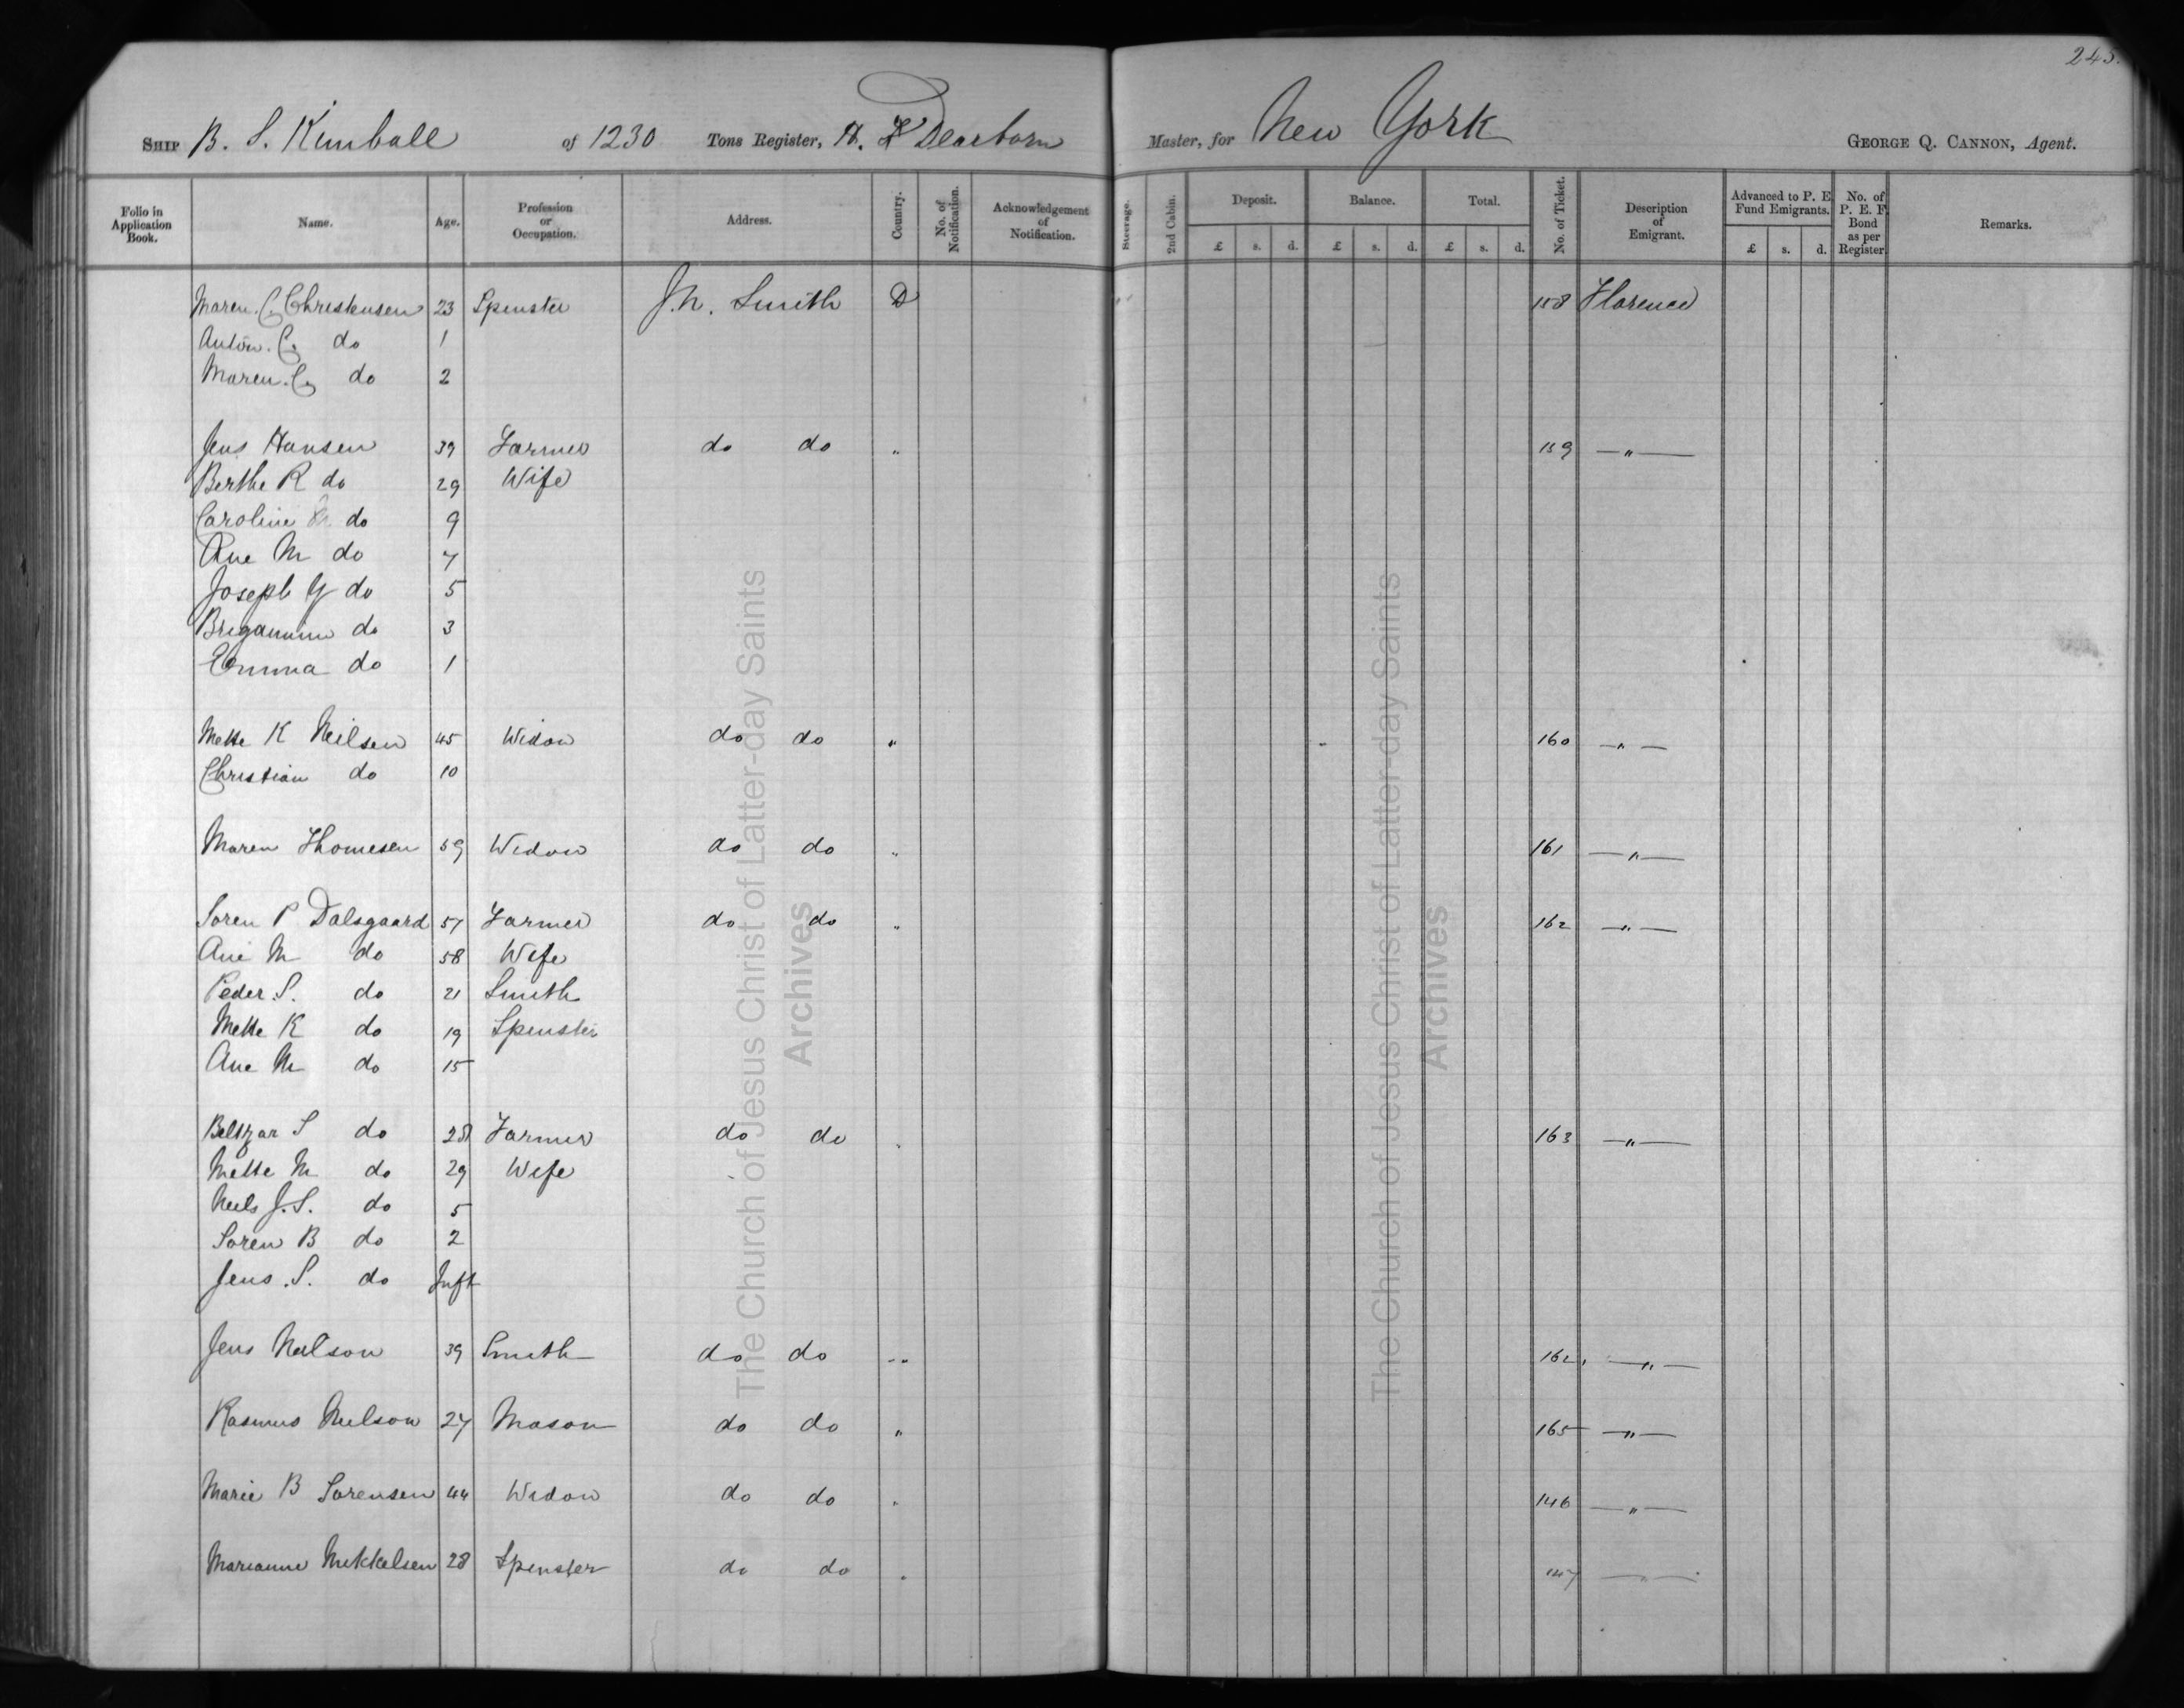 245.
SHIP B. S. Kimball of 1230 Tons Register, H. Dearborn Master, for New York GEORGE Q. CANNON, Agent.
Folio in Application Book. Name. Age. Profession or Occupation. Address. Country. No. of Notification. Acknowledgement of Notification. Steerage. 2nd Cabin. Deposit. £ s. d. Balance. £ s. d. Total. £ s. d. No. of Ticket. Description of Emigrant. Advanced to P. E. Fund Emigrants. £ s. d. No. of P. E. F. Bond as per Register. Remarks.
Maren C. Christensen 23 Spinster J. N. Smith D 158 Florence
Anton C. do 1
Maren C. do 2
Jens Hansen 39 Farmer do do " 159 — " —
Berthe R do 29 Wife
Caroline do 9
Ane M do 7
Joseph Y do 5
do 3
Emma do 1
Mette K Neilsen 45 Widow do do " 160 — " —
Christian do 10
Maren Thomesen 59 Widow do do " 161 — " —
Soren P Dalsgaard 57 Farmer do do " 162 — " —
Ane M do 58 Wife
Peder S. do 21 Smith
Mette K do 19 Spinster
Ane M do 15
Beltzar S do 28 Farmer do do " 163 — " —
Mette M do 29 Wife
Neils J. S. do 5
Soren B do 2
Jens S. do Inft
Jens Neilson 39 Smith do do " — " —
Rasmus Neilson 27 Mason do do " 165 — " —
Marie B Sorensen 44 Widow do do " 146 — " —
Marianne Mikkelsen 28 Spinster do do " 147 — " —
The Church of Jesus Christ of Latter-day Saints
Archives
The Church of Jesus Christ of Latter-day Saints
Archives